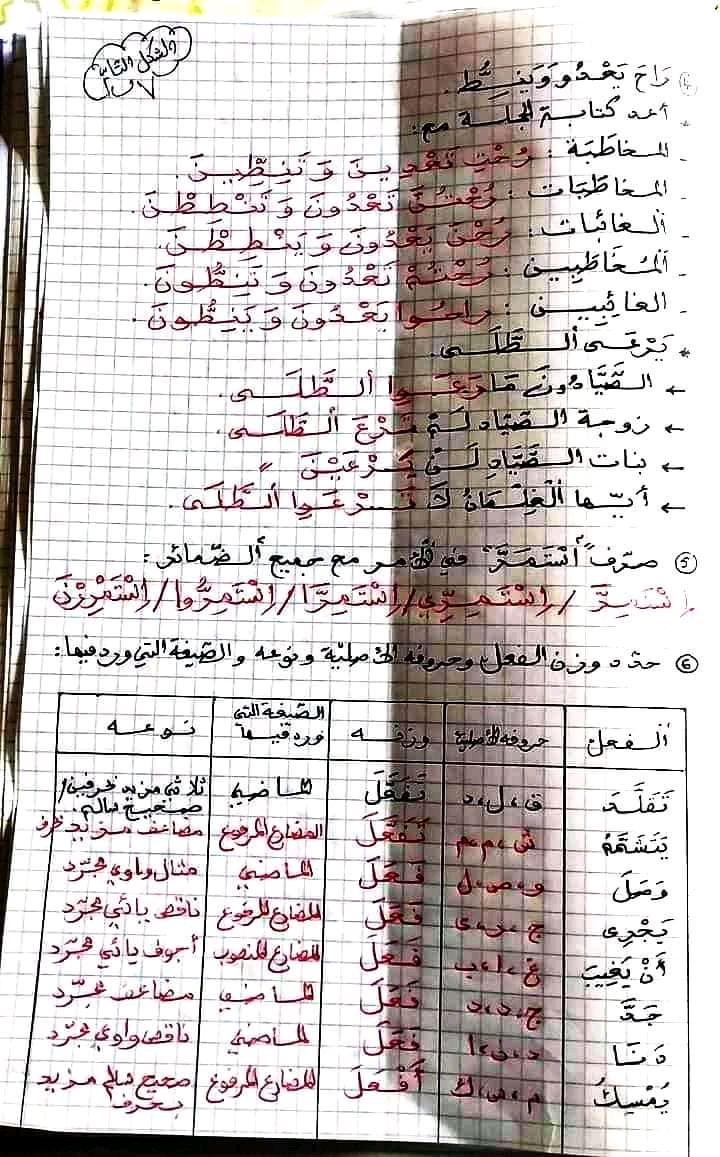 الشكل الثاني
4) رَاحَ يَعْدُو وَيَنِطُّ.
* أعد كتابة الجملة مع:
- المخاطبة: رُحْتِ تَعْدِينَ وَ تَنِطِّينَ.
- المخاطَبات: رُحْتُنَّ تَعْدُونَ وَ تَنْطِطْنَ.
- الغائبات: رُحْنَ يَعْدُونَ وَ يَنْطِطْنَ.
- المُخَاطَبِين: رُحْتُمْ تَعْدُونَ وَ تَنِطُّونَ.
- الغائِبِين: راحُوا يَعْدُونَ وَ يَنِطُّونَ.
* يَرْعَى الطَّلَى.
← الصَّيَّادُونَ مَا رَعَوا الطَّلَى.
← زوجة الصَيَّاد لَمْ تَرْعَ الطَّلَى.
← بنات الصَّيَّادِ لَنْ يَرْعَيْنَ "
← أيّها الْغِلْمَانُ لَا تَرْعَوا الطَّلَى.
5) صرّف "اسْتَمَرَّ" في الأمر مع جميع الضّمائر:
اِسْتَمِرَّ / اِسْتَمِرِّي / اِسْتَمِرَّا / اِسْتَمِرُّوا / اِسْتَمْرِرْنَ
6) حدّد وزن الفعل وحروفه الأصليّة ونوعه والصّيغة التي ورد فيها:
الفعل حروفه الأصلية وزنه الصّيغة التي ورد فيها نوعه
تَقَلَّدَ ق، ل، د تَفَعَّلَ الماضي ثلاثي مزيد بحرفين / صحيح سالم.
يَتَشَمَّمُ ش، م، م تَفَعَّلَ المضارع المرفوع مضاعف مزيد بحرف
وَصَلَ و، ص، ل فَعَلَ الماضي مثال واوي مجرّد
يَجْرِي ج، ر، ي فَعَلَ المضارع المرفوع ناقص يائي مجرّد
أَنْ يَغِيبَ غ، ا، ب فَعَلَ المضارع المنصوب أجوف يائي مجرّد
جَدَّ ج، د، د فَعَلَ الماضي مضاعف مجرّد
دَنَا د، ن، ا فَعَلَ الماضي ناقص واوي مجرّد
يُمْسِكُ م، س، ك أَفْعَلَ المضارع المرفوع صحيح سالم مزيد بحرف